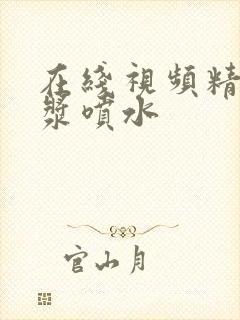 在綫視頻精
漿噴水
官山月